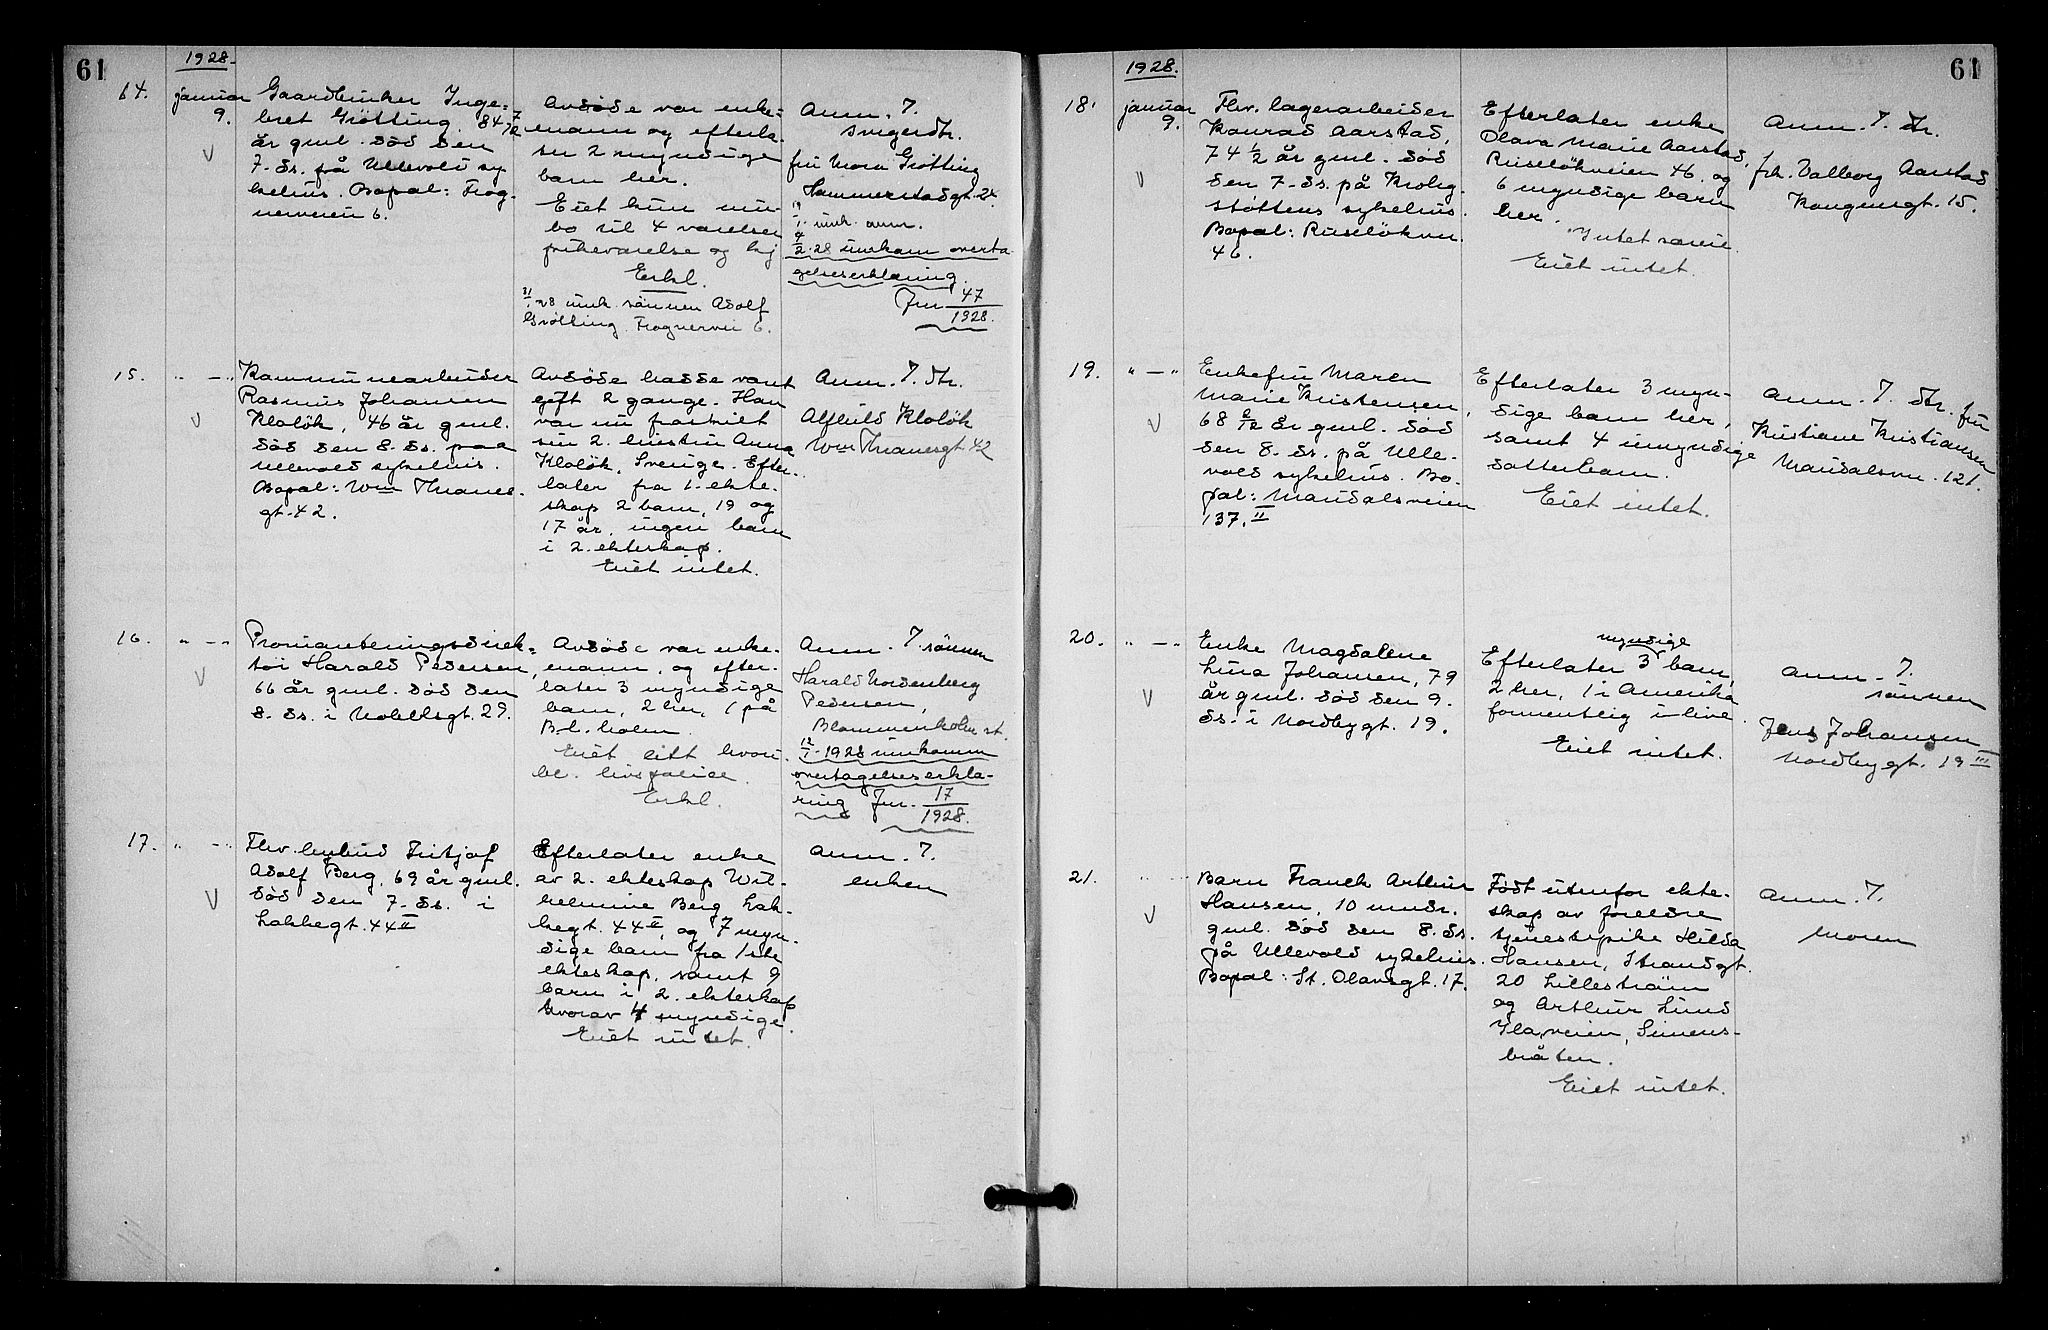 61
1928.
14.
januar
9.
Gaardbruker Inge-
bret Grötting. 84 7/12
år gml. död den
7. ds. på Ullevold sy
kehus. Bopæl: Frog-
nerveien 6.
Avdöde var enke-
mann og efterla-
ter 2 myndige
barn her.
Eiet kun inn-
bo til 4 værelser
pikeværelse og kj
Erkl.
31/1 28 innk. sönnen Adolf
Grötting Frognervei 6.
Anm. 7.
svigerdtr.
fru Mora Grötting
Hammerstadgt. 24.
19/1 innk. anm.
9/2 28 innkom overta-
gelseserklæring.
Jnr 47/1928.
15.
" — "
Kommunearbeider
Rasmus Johansen
Klolök, 46 år gml.
död den 8. ds. paa
Ullevold sykehus.
Bopæl: Wm Thranes-
gt. 42.
Avdöde hadde vært
gift 2 gange. Han
var nu fraskilt
sin 2. hustru Anna
Klolök, Sverige. Efter-
later fra 1. ekte-
skap 2 barn, 19 og
17 år, ingen barn
i 2. ekteskap.
Eiet intet.
Anm. 7. dtr.
Alfhild Klolök
Wm Thranesgt 42
16.
" — "
Provianteringsdirek-
tör Harald Pedersen,
66 år gml. död den
8. ds. i Nobelsgt. 29.
Avdöde var enke-
mann, og efter-
later 3 myndige
barn, 2 her, 1 på
Bl. holm.
Eiet litt hvori-
bl. livspolice.
Erkl.
Anm. 7. sönnen
Harald Nordenberg
Pedersen,
Blommenholm st.
12/1 1928 innkomm
overtagelseserklæ-
ring Jnr. 17/1928.
17.
" — "
Fhv. bybud Fritjof
Adolf Berg, 69 år gml.
död den 7. ds. i
Lakkegt. 44 II
Efterlater enke
av 2. ekteskap Wil-
helmine Berg Lak-
kegt. 44 II, og 7 myn-
dige barn fra 1ste
ekteskap, samt 9
barn i 2. ekteskap
hvorav 4 myndige.
Eiet intet.
Anm. 7.
enken
61
1928.
18.
januar
9.
Fhv. lagerarbeider
Konrad Aarstad,
74 1/2 år gml. död
den 7. ds. på Krohg-
stöttens sykehus.
Bopæl: Ruselökvn.
46.
Efterlater enke
Olava Marie Aarstad,
Ruselökveien 46. og
6 myndige barn
her.
Intet særeie.
Eiet intet.
Anm. 7. dtr.
frk. Valborg Aarstad
Kongensgt. 15.
19.
" — "
Enkefru Maren
Marie Kristensen,
68 8/12 år gml. död
den 8. ds. på Ulle-
vold sykehus. Bo-
pæl: Maridalsveien
137. II
Efterlater 3 myn-
dige barn her,
samt 4 umyndige
datterbarn.
Eiet intet.
Anm. 7. dtr. fru
Kristiane Kristiansen
Maridalsvn. 121.
20.
" — "
Enke Magdalene
Lina Johansen, 79
år gml. död den 9.
ds. i Nordbygt. 19.
myndige
Efterlater 3 barn,
2 her, 1 i Amerika
formentlig i live.
Eiet intet.
Anm. 7.
sönnen
Jens Johansen
Nordbygt. 19 III
21.
" — "
Barn Franck Arthur
Hansen, 10 mndr.
gml. död den 8. ds.
på Ullevold sykehus.
Bopæl: St. Olavsgt. 17.
Födt utenfor ekte-
skap av foreldre
tjenestepike Hilda
Hansen, Strandgt.
20 Lilleström
og Arthur Lund
Ilaveien, Simens-
bråten.
Eiet intet.
Anm. 7.
Moren